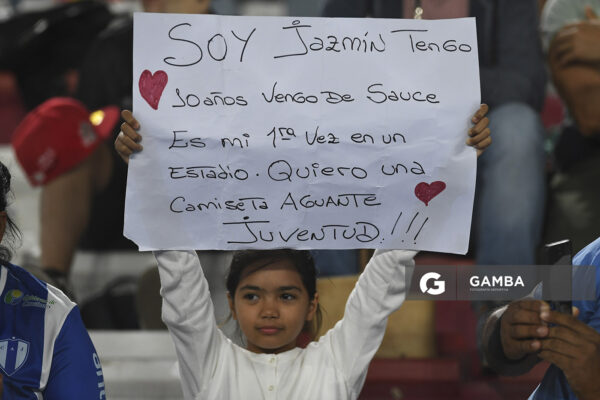 SOY Jazmín Tengo
10 años Vengo De Sauce
Es mi 1ra Vez en un
Estadio. Quiero una
Camiseta AGUANTE
JUVENTUD!!!
G GAMBA
FOTOGRAFÍA DEPORTIVA